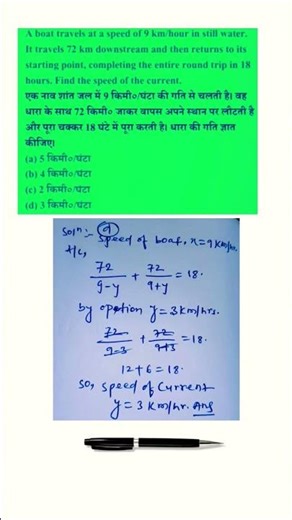 A boat travels at a speed of 9 km/hour in still water.
It travels 72 km downstream and then returns to its
starting point, completing the entire round trip in 18
hours. Find the speed of the current.
एक नाव शांत जल में 9 किमी०/घंटा की गति से चलती है। वह
धारा के साथ 72 किमी० जाकर वापस अपने स्थान पर लौटती है
और पूरा चक्कर 18 घंटे में पूरा करती है। धारा की गति ज्ञात
कीजिए।
(a) 5 किमी०/घंटा
(b) 4 किमी०/घंटा
(c) 2 किमी०/घंटा
(d) 3 किमी०/घंटा
Soln:- (d)
Speed of boat, x=9 km/hr.
A/c,
72/9-y + 72/9+y = 18.
by option y=3km/hrs.
72/9-3 + 72/9+3 = 18.
12+6=18.
So, speed of current
y=3 km/hr. Ans